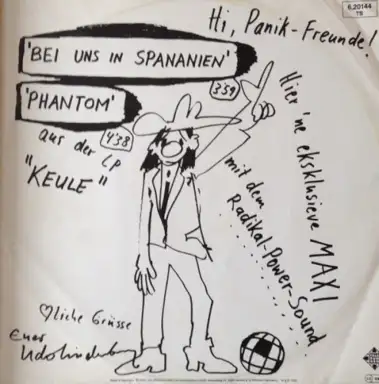 6.20144
TS
Hi, Panik-Freunde!
'BEI UNS IN SPANANIEN'
3'59
'PHANTOM'
4'38
aus der LP
"KEULE"
Hier 'ne eksklusieve MAXI
mit dem
Radikal-Power-Sound
♡liche Grüsse
Euer
Udo Lindenberg